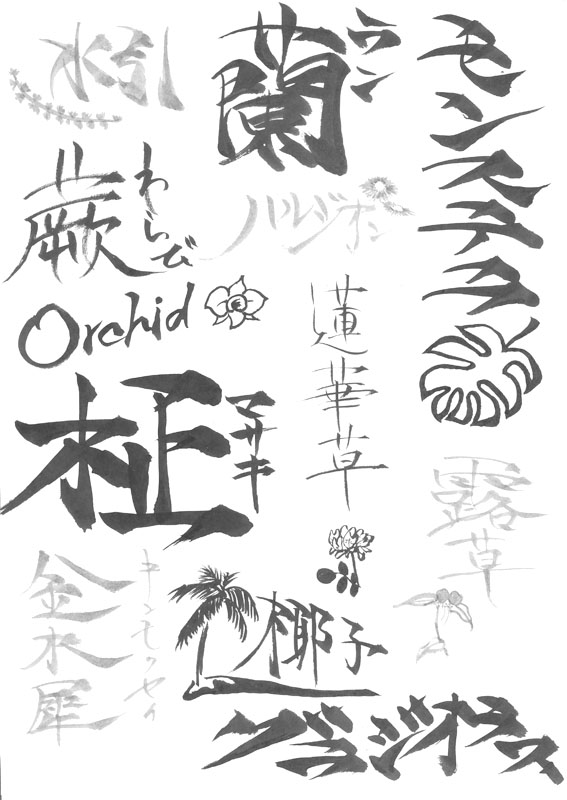 水引
蘭
ラン
モンステラ
蕨
わらび
ハルジオン
Orchid
蓮華草
柾
マサキ
露草
金木犀
キンモクセイ
椰子
グラジオラス